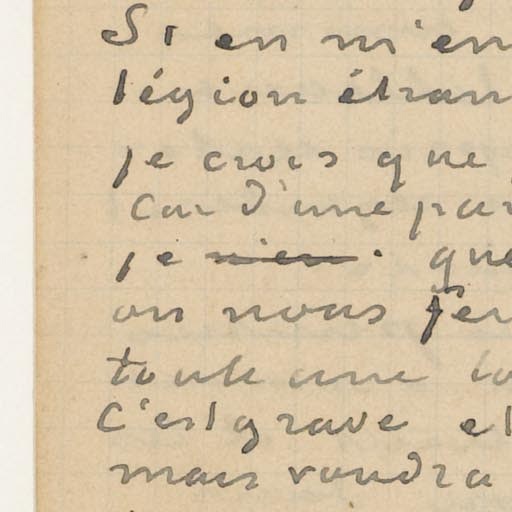 Si en m'en
légion étran
je crois que
car d'une par
je rien. que
on nous fer
toute une
C'est grave et
mais voudra